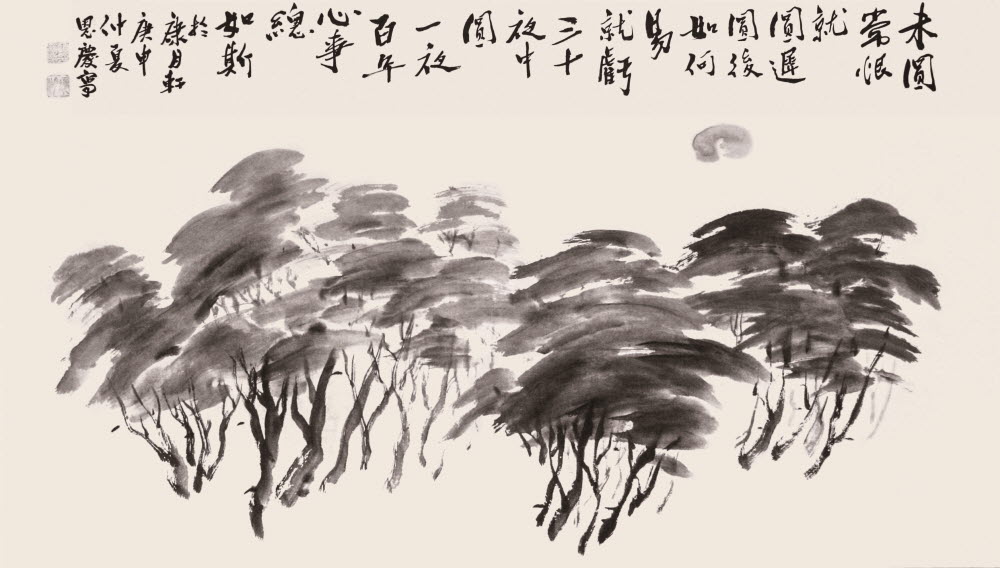 未圓
常恨
就
圓遲
圓後
如何
易
就虧
三十
夜中
圓
一夜
百年
心事
總
如斯
於
月軒
庚申
仲夏
慶寫